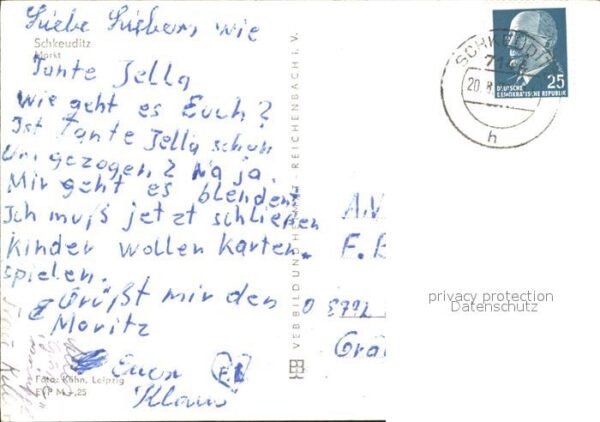 Liebe wie
Schkeuditz
Markt
Tante Jella
Wie geht es Euch?
Ist Tante Jella schon
umgezogen? Na ja.
Mir geht es blendend
Ich muß jetzt schließen
Kinder wollen Karten
spielen.
Grüßt mir den
Moritz
Euer
Klaus
Foto: Kühn, Leipzig
VEB BILD UND HEIMAT REICHENBACH i. V.
SCHKEUDITZ
20.8
h
25
DEUTSCHE
DEMOKRATISCHE REPUBLIK
A.V
F. B
Grä
privacy protection
Datenschutz